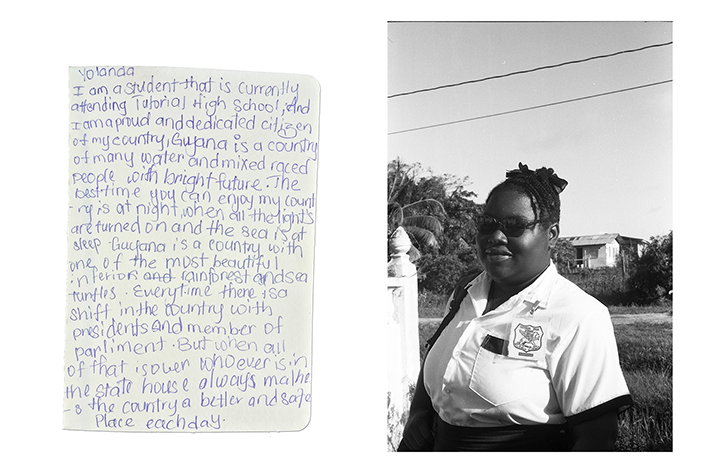 Yolanda
I am a student that is currently
attending Tutorial High School, And
I am a proud and dedicated citizen
of my country, Guyana is a country
of many water and mixed raced
people with bright future. The
best time you can enjoy my count
-ry is at night, when all the lights
are turned on and the sea is at
sleep. Guyana is a country with
one of the most beautiful
interiors and rainforest and sea
turtles. Everytime there is a
shift in the country with
presidents and member of
parliment. But when all
of that is over whoever is in
the state house always make
-s the country a better and safe
Place each day.